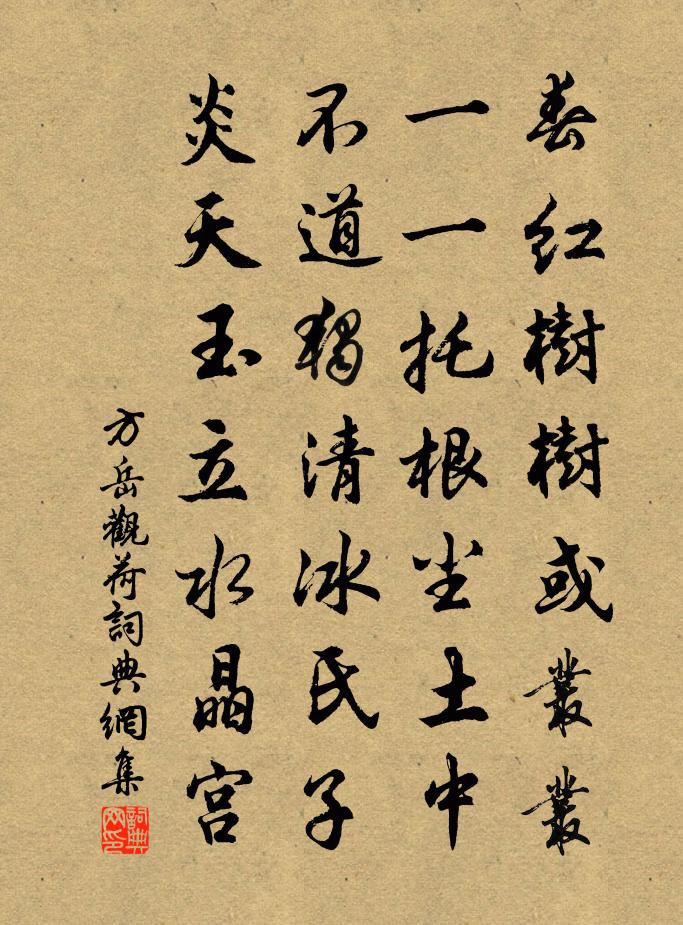 春紅樹樹或叢叢
一一托根尘土中
不道獨清冰氏子
炎天玉立水晶宮
方岳觀荷詞典網集
詞典網印